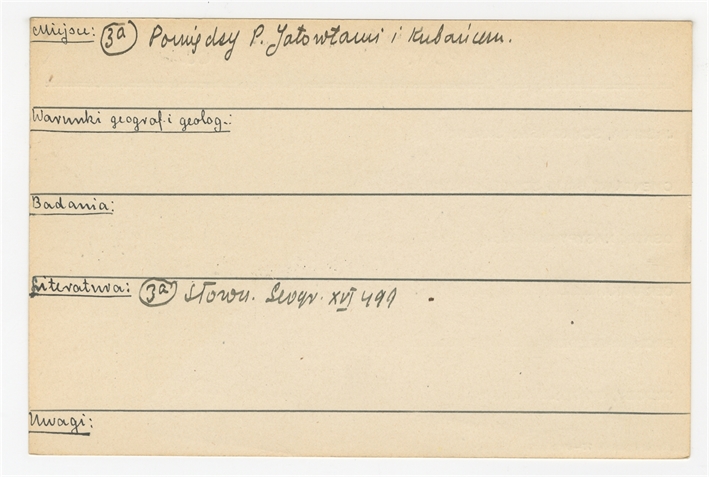 Miejsce: 3a Pomiędzy P. Jatowtami i Kubańcem.
Warunki geograf. i geolog.:
Badania:
Literatura: 3a Słown. Geogr. XVI 491
Uwagi: